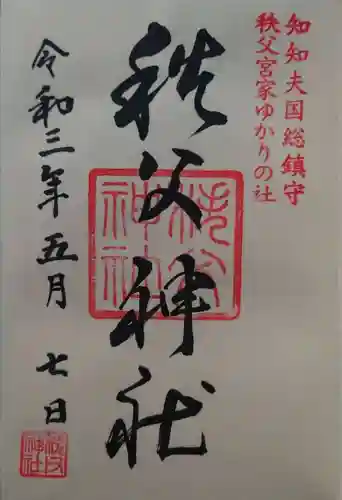 知知夫国総鎮守
秩父宮家ゆかりの社
秩父神社
秩父神社
令和三年五月七日
秩父神社